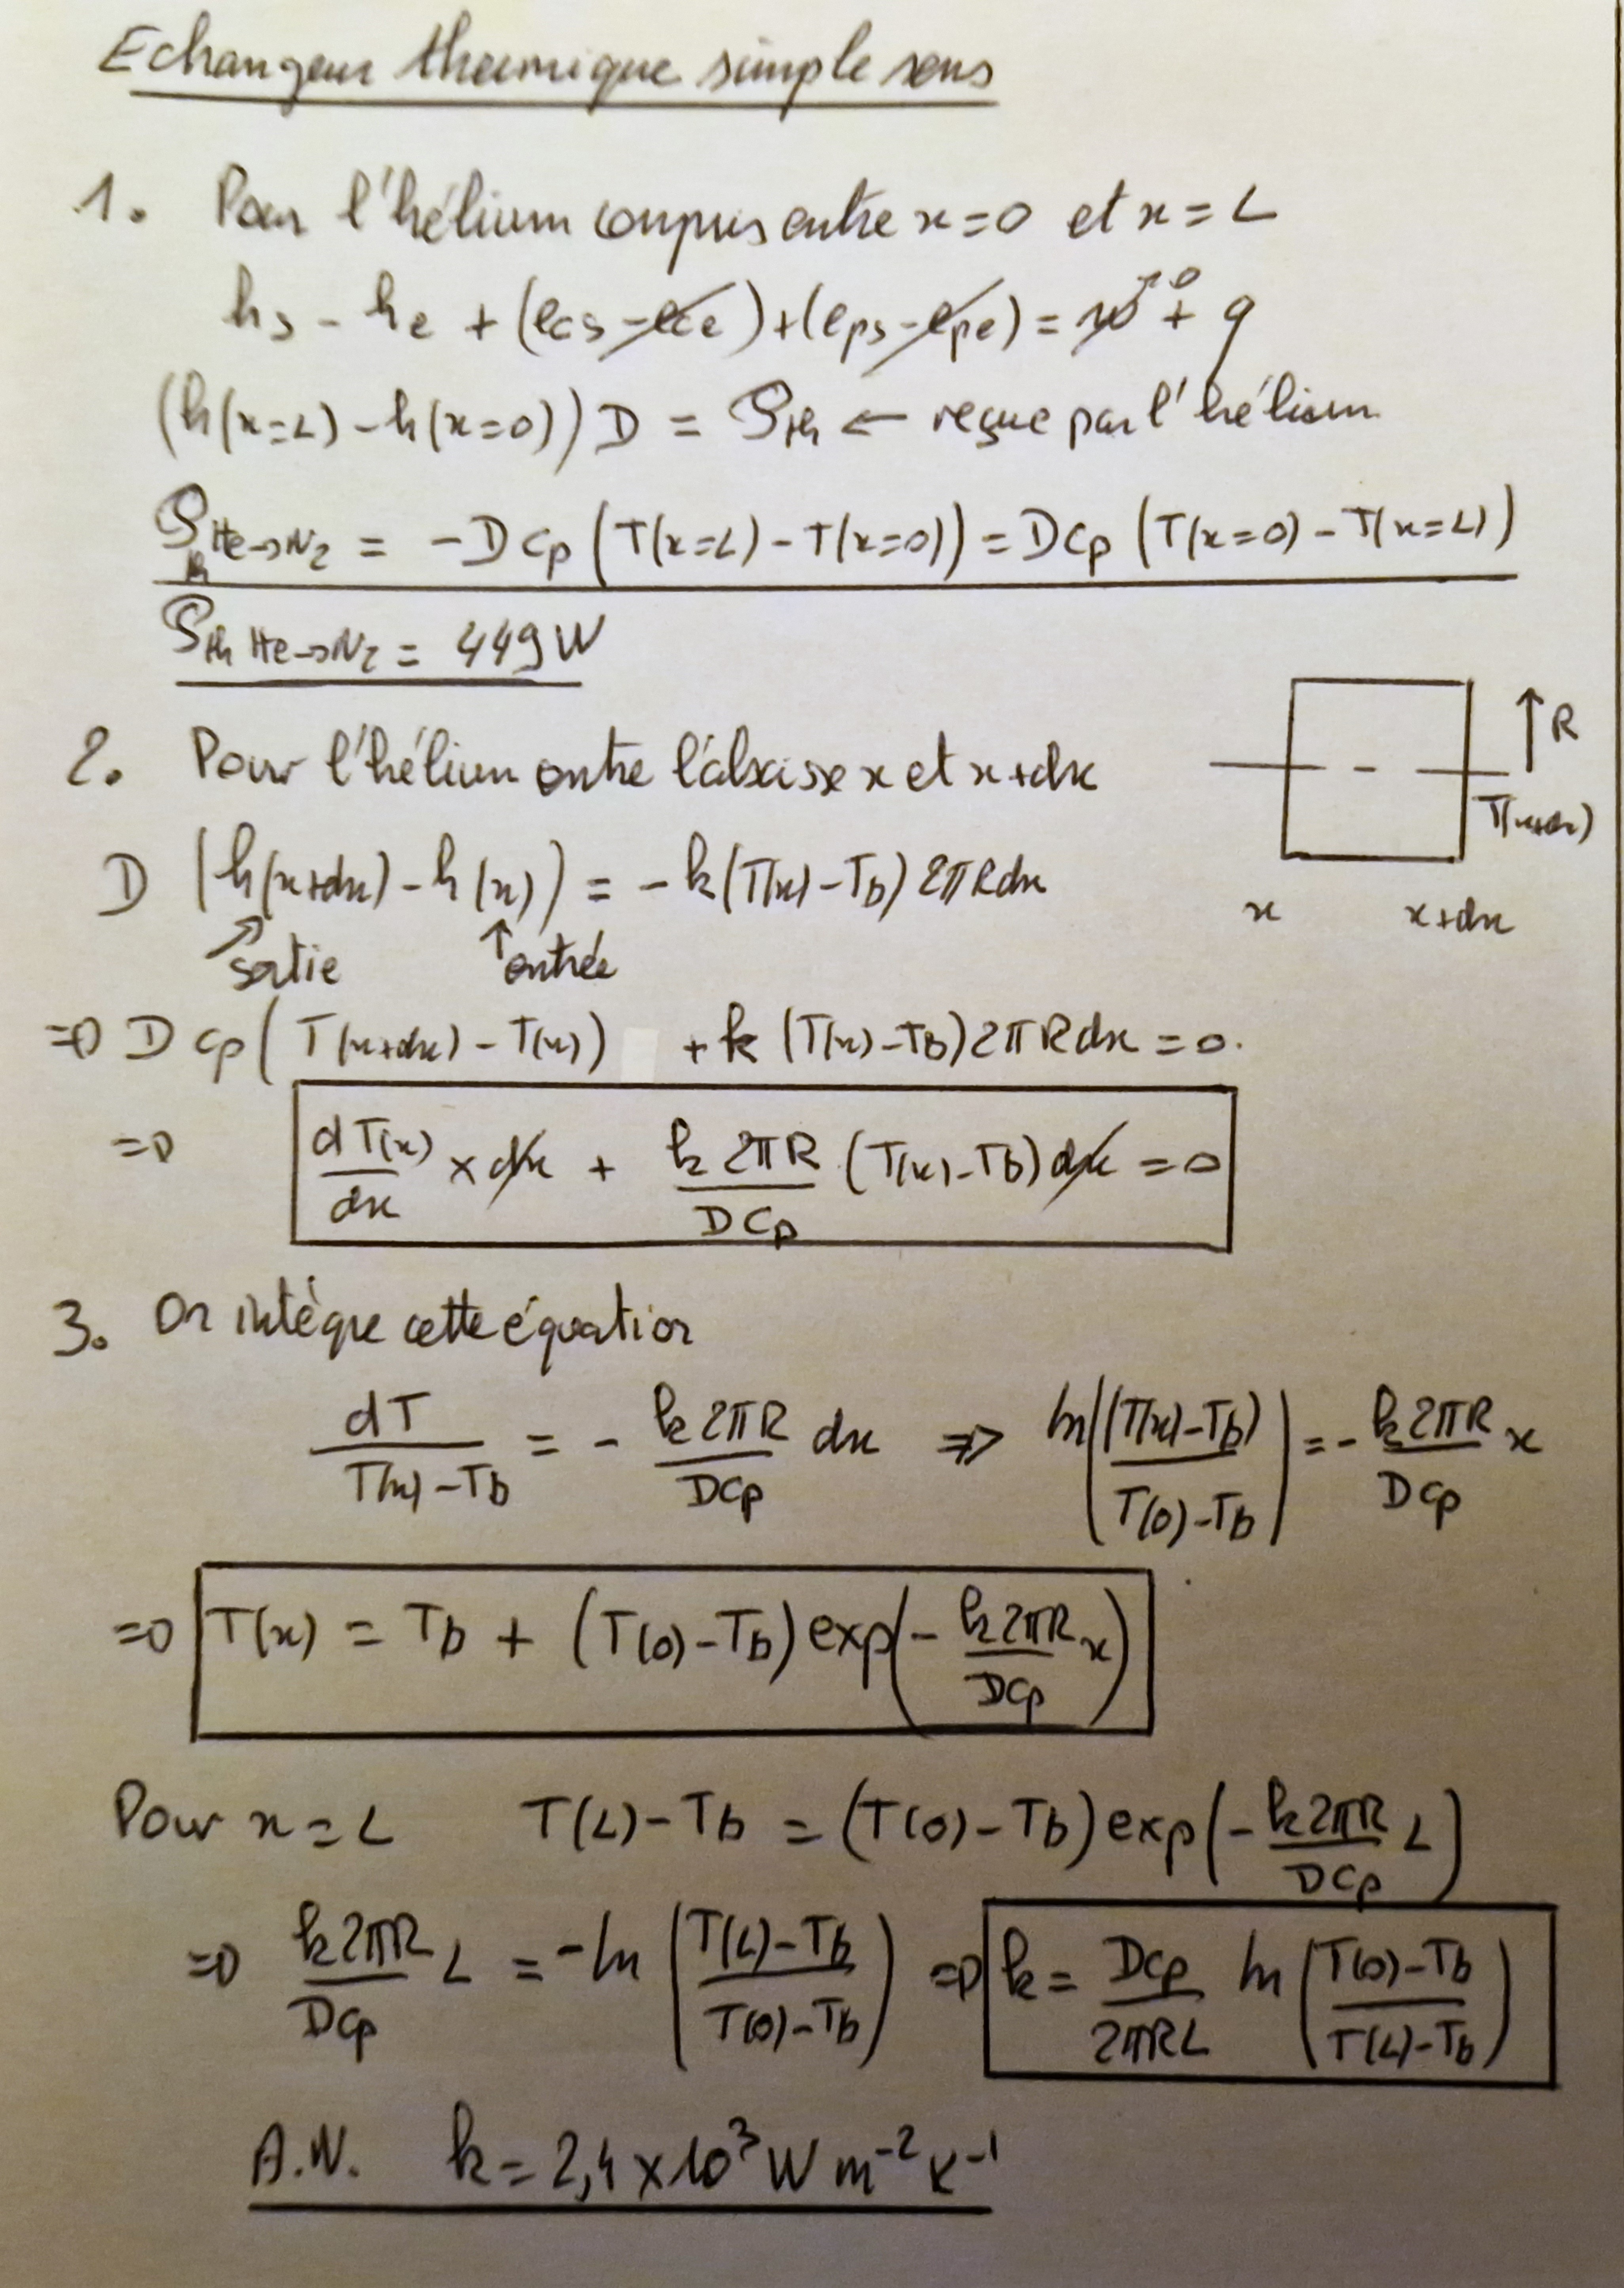 Echangeur thermique simple sens
1. Pour l'hélium compris entre x=0 et x=L
hs - he + (ecs - ece) + (eps - epe) = w→0 + q
(h(x=L) - h(x=0)) D = Pth ← reçue par l'hélium
Pth He→N2 = -D cp (T(x=L) - T(x=0)) = D cp (T(x=0) - T(x=L))
Pth He→N2 = 449 W
2. Pour l'hélium entre l'abscisse x et x+dx
R
T(x+dx)
x x+dx
D (h(x+dx) - h(x)) = -k(T(x) - Tb) 2πRdx
sortie entrée
=> D cp (T(x+dx) - T(x)) + k (T(x) - Tb) 2πRdx = 0.
=> dT(x)/dx × dx + k2πR/Dcp (T(x) - Tb) dx = 0
3. On intègre cette équation
dT/(T(x) - Tb) = - k2πR/Dcp dx => ln|(T(x) - Tb)/(T(0) - Tb)| = - k2πR/Dcp x
=> T(x) = Tb + (T(0) - Tb) exp(- k2πR/Dcp x)
Pour x=L T(L) - Tb = (T(0) - Tb) exp(- k2πR/Dcp L)
=> k2πR/Dcp L = -ln (T(L) - Tb/T(0) - Tb) => k = Dcp/2πRL ln (T(0) - Tb/T(L) - Tb)
A.N. k = 2,4 × 10³ W m⁻² K⁻¹